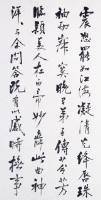 震怒罷如江海凝清光絳唇珠
袖兩寂寞晚有弟子傳芬芳
臨潁美人在白帝妙舞此曲神
揚揚與余問答既有以感時撫事